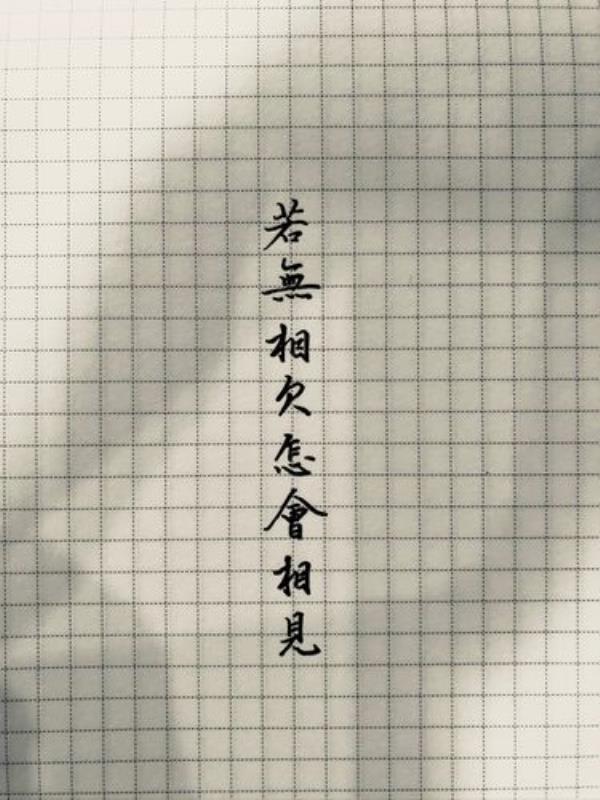 若無相欠怎會相見